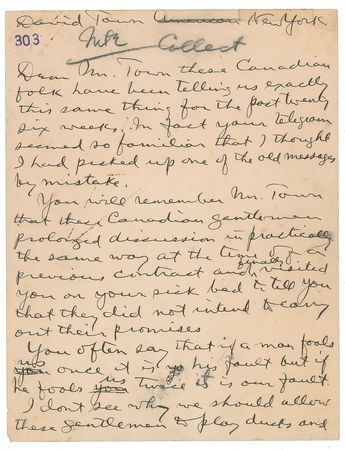 David Town American New York
303 NYE Collect
Dear Mr. Town these Canadian
folk have been telling us exactly
this same thing for the past twenty
six weeks. In fact your telegram
seemed so familiar that I thought
I had picked up one of the old messages
by mistake.
You will remember Mr. Town
that these Canadian gentlemen
prolonged discussion in practically
the same way at the time of a
previous contract and finally visited
you on your sick bed to tell you
that they did not intend to carry
out their promises
You often say that if a man fools
you us once it is his fault but if
he fools you us twice it is our fault.
I don't see why we should allow
these gentlemen to play ducks and